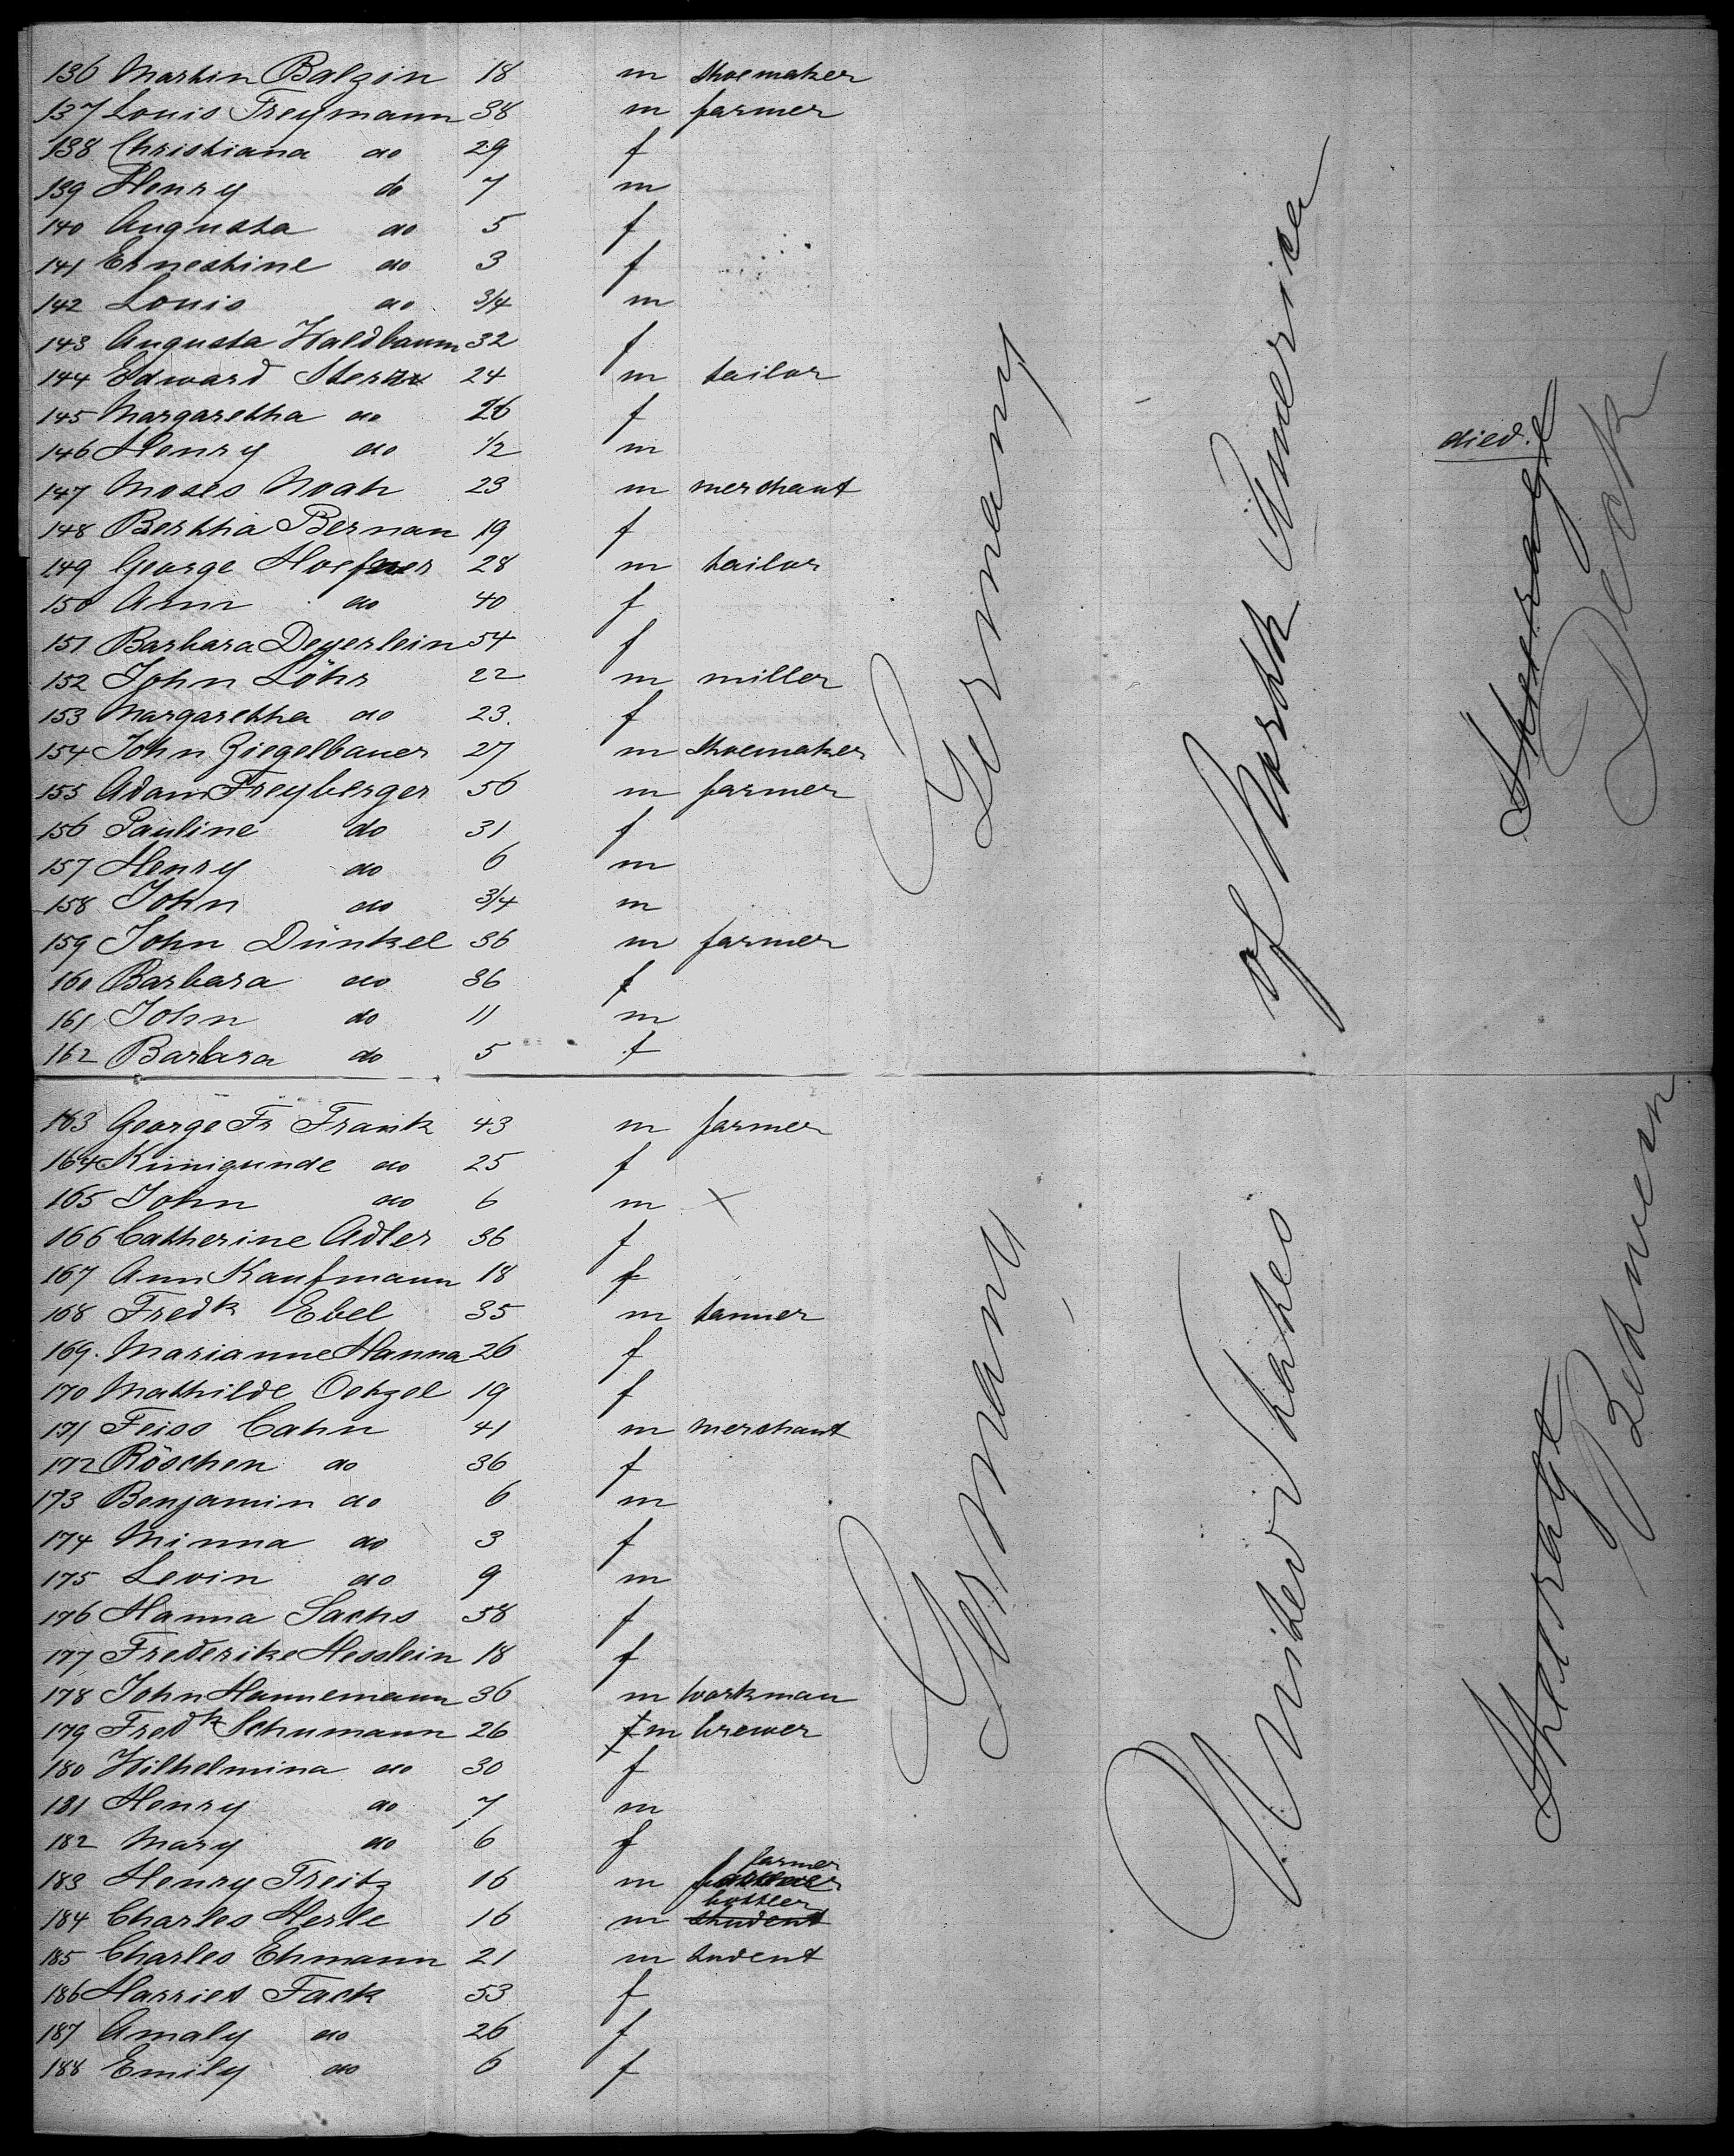 136 Martin Balzin 18 m shoemaker
137 Louis Freymann 38 m farmer
138 Christiana do 29 f
139 Henry do 7 m
140 Augusta do 5 f
141 Ernestine do 3 f
142 Louis do 3/4 m
143 Augusta Waldbaum 32 f
144 Edward 24 m tailor
145 Margaretha do 26 f
146 Henry do 1/2 m
147 Moses Noah 23 m merchant
148 Bertha Bernan 19 f
149 George 28 m tailor
150 Ann do 40 f
151 Barbara Deyerlein 54 f
152 John Löhr 22 m miller
153 Margaretha do 23. f
154 John Ziegelbauer 27 m shoemaker
155 Adam Freyberger 50 m farmer
156 Pauline do 31 f
157 Henry do 6 m
158 John do 3/4 m
159 John Dünkel 36 m farmer
160 Barbara do 36 f
161 John do 11 m
162 Barbara do 5 f
163 George Fr Frank 43 m farmer
164 Kunigunde do 25 f
165 John do 6 m X
166 Catherine Adler 36 f
167 Ann Kaufmann 18 f
168 Fredk Ebel 35 m tanner
169. Marianne Hanna 26 f
170 Mathilde Oetzel 19 f
171 Feiss Cahn 41 m merchant
172 Röschen do 36 f
173 Benjamin do 6 m
174 Minna do 3 f
175 Levin do 9 m
176 Hanna Sachs 58 f
177 Frederike Hesslein 18 f
178 John Hannemann 36 m workman
179 Fredk Schumann 26 f m brewer
180 Wilhelmina do 30 f
181 Henry do 7 m
182 Mary do 6 f
183 Henry Treitz 16 m farmer
184 Charles Herle 16 m student bottler
185 Charles Ehmann 21 m tudent
186 Harriet Fack 53 f
187 Amaly do 26 f
188 Emily do 6 f
Germany
Germany
United States of North America
died.
Steerage Steerage
Between Deck